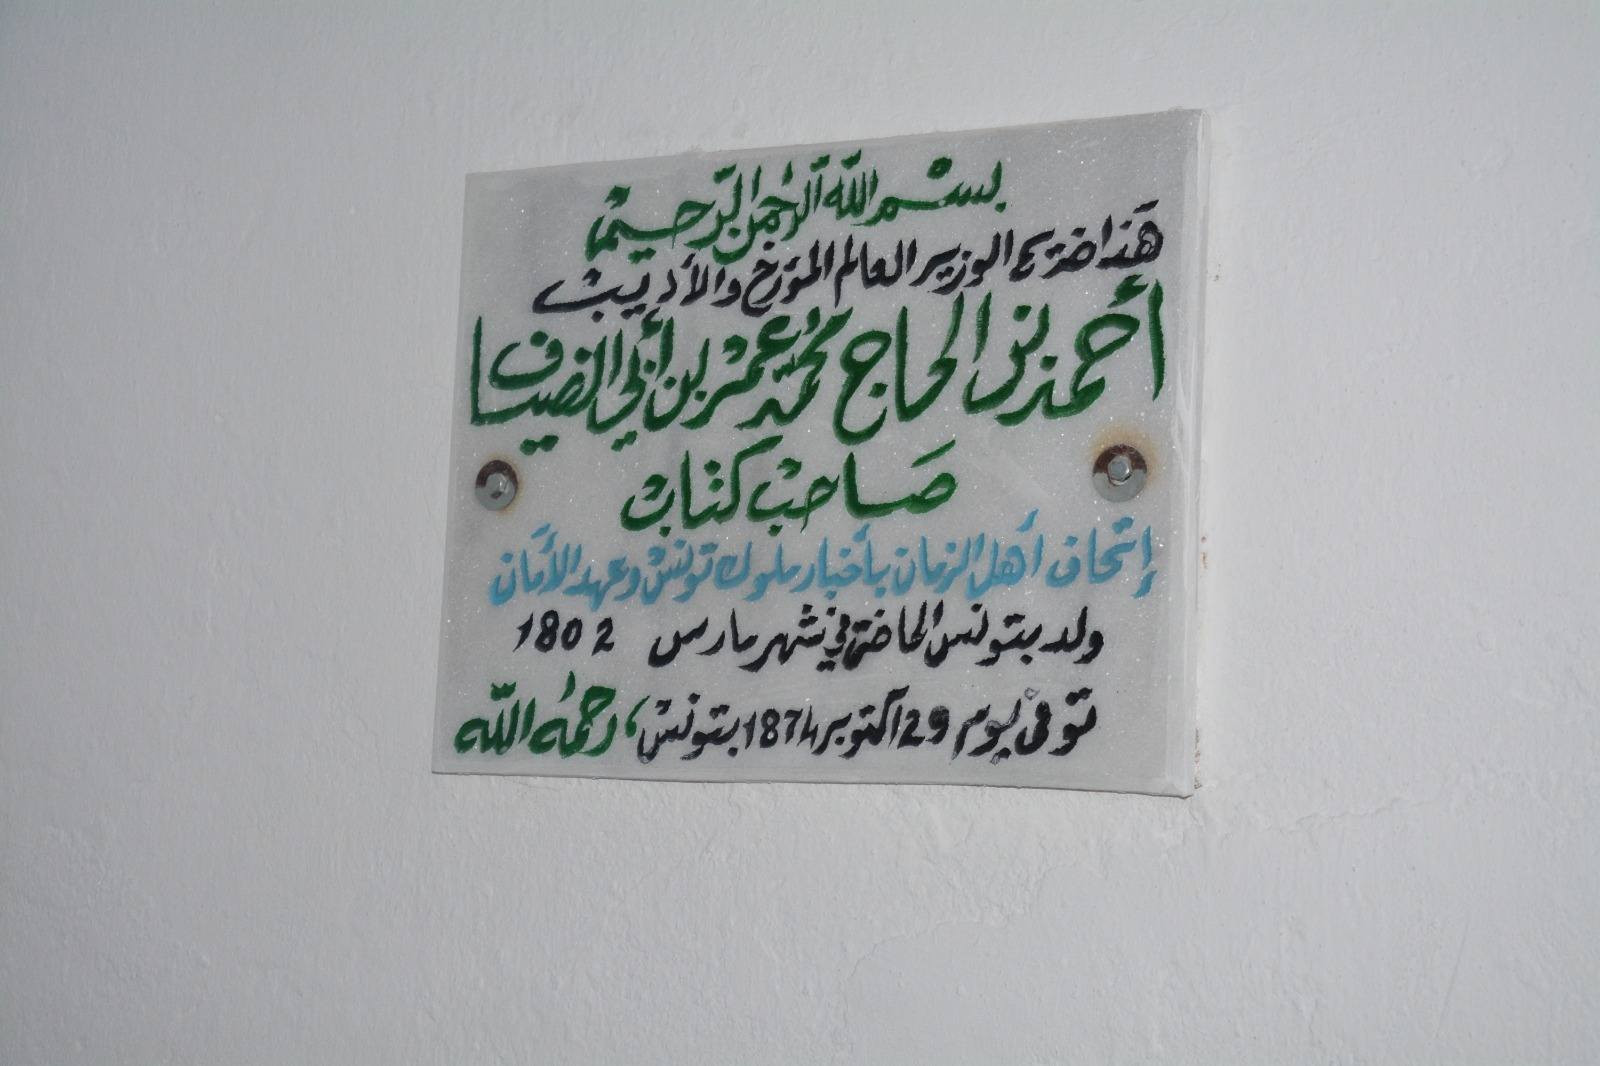 بسم الله الرحمن الرحيم
هذا ضريح الوزير العالم المؤرخ والأديب
أحمد بن الحاج محمد عمر بن أبي الضياف
صاحب كتاب
إتحاف أهل الزمان بأخبار ملوك تونس وعهد الأمان
ولد بتونس الحاضرة في شهر مارس 1802
توفى يوم 29 أكتوبر 1874 بتونس، رحمه الله